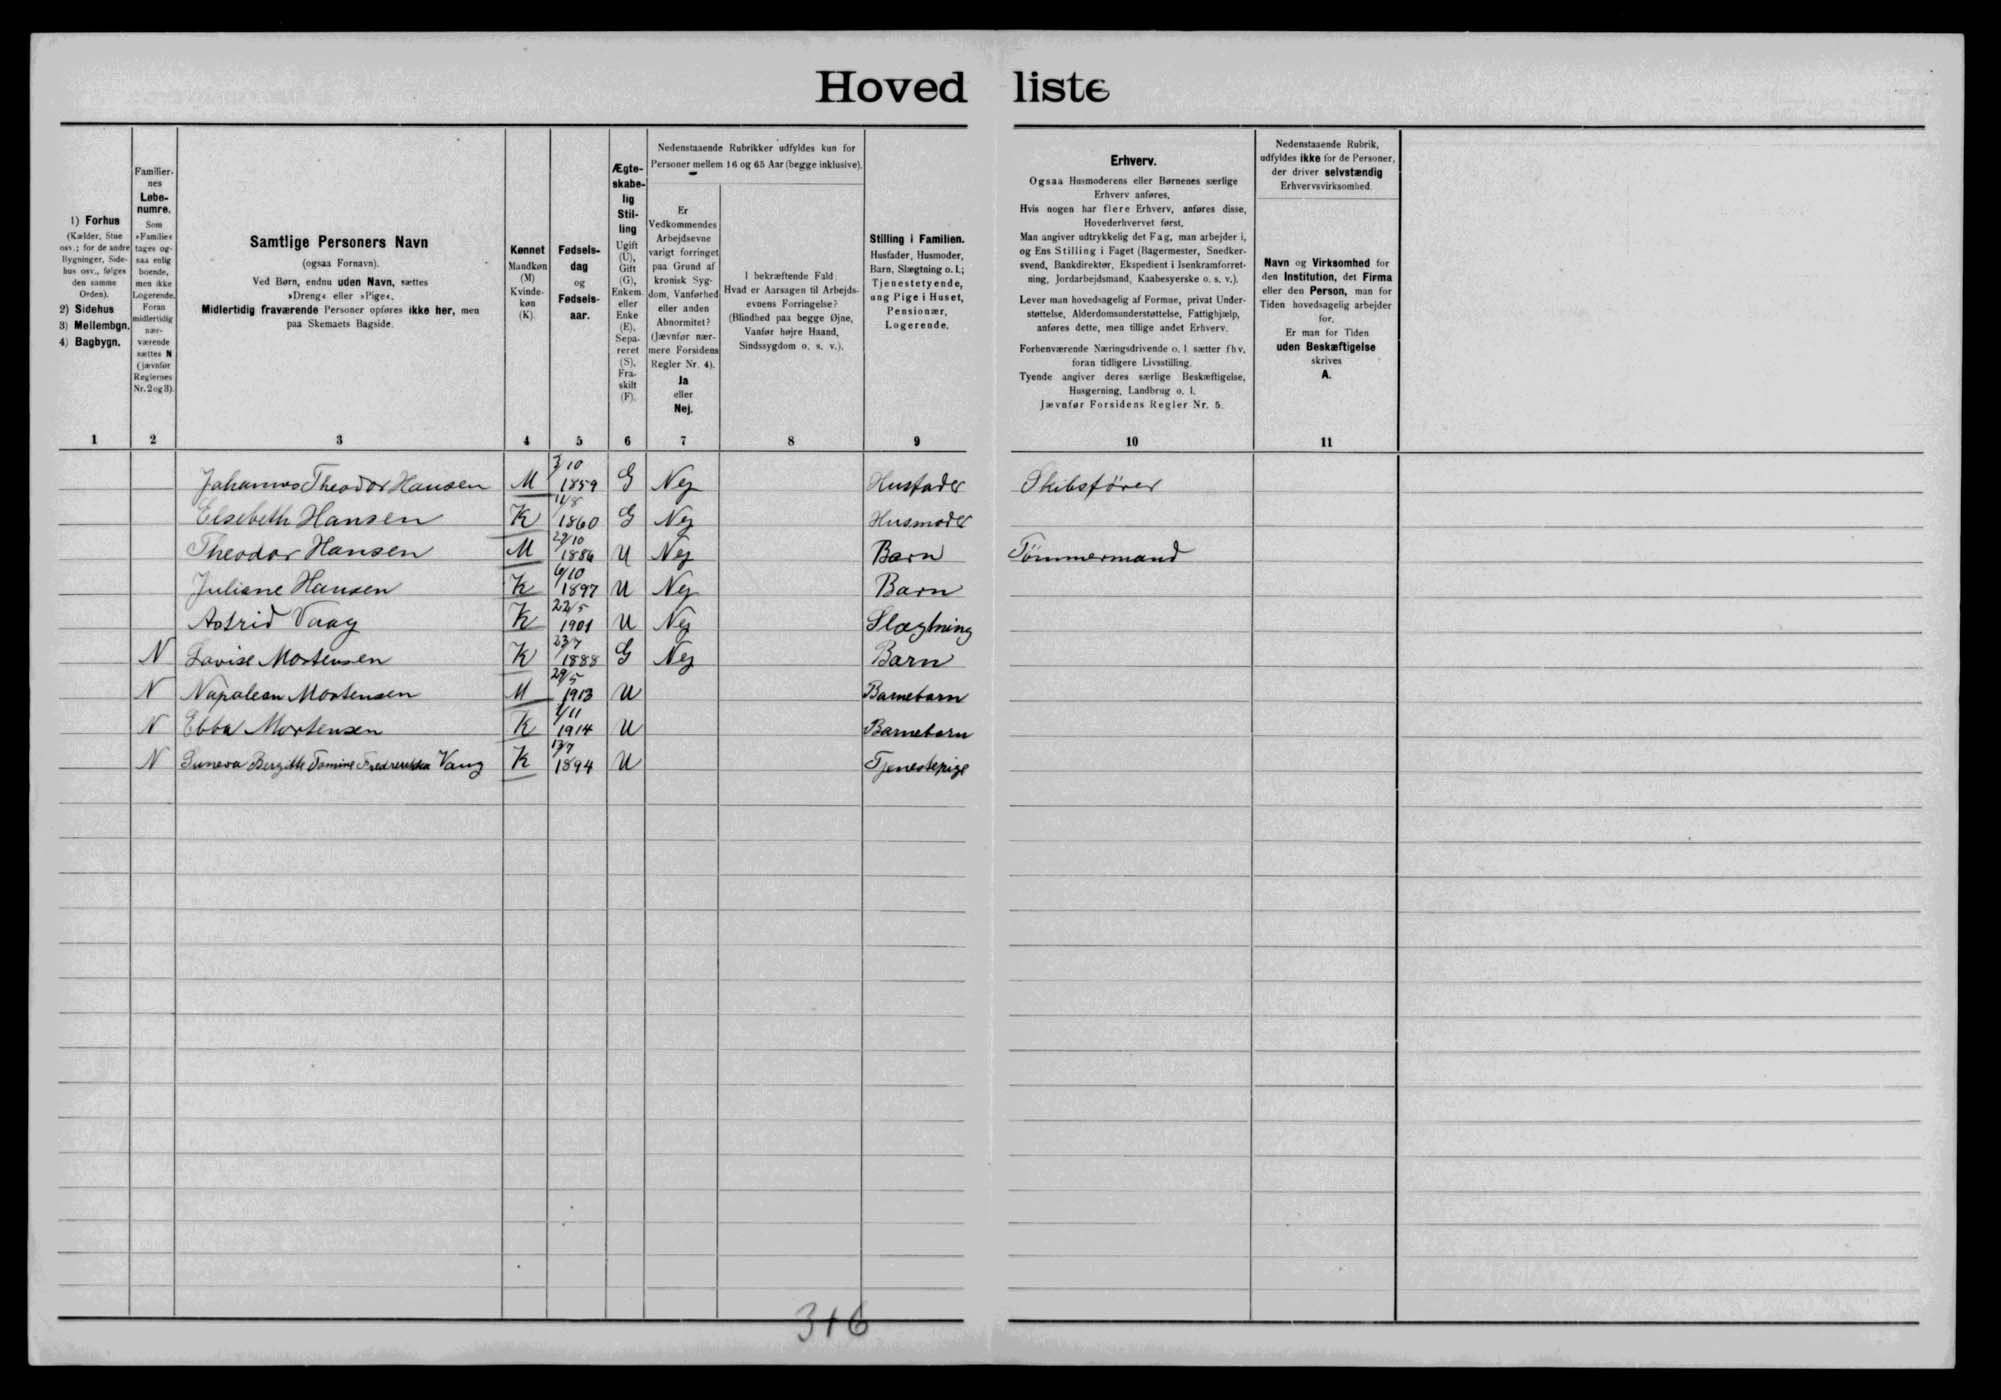 Hoved liste
1) Forhus
(Kælder, Stue
osv.; for de andre
Bygninger, Side-
hus osv., følges
den samme
Orden).
2) Sidehus
3) Mellembgn.
4) Bagbygn.
Familier-
nes
Løbe-
numre.
Som
»Familie«
tages og-
saa enlig
boende,
men ikke
Logerende.
Foran
midlertidig
nær-
værende
sættes N
(jævnfør
Reglernes
Nr. 2 og 3).
Samtlige Personers Navn
(ogsaa Fornavn).
Ved Børn, endnu uden Navn, sættes
»Dreng« eller »Pige«.
Midlertidig fraværende Personer opføres ikke her, men
paa Skemaets Bagside.
Kønnet
Mandkøn
(M)
Kvinde-
køn
(K).
Fødsels-
dag
og
Fødsels-
aar.
Ægte-
skabe-
lig
Stil-
ling
Ugift
(U),
Gift
(G),
Enkem.
eller
Enke
(E),
Sepa-
reret
(S),
Fra-
skilt
(F).
Nedenstaaende Rubrikker udfyldes kun for
Personer mellem 16 og 65 Aar (begge inklusive).
Er
Vedkommendes
Arbejdsevne
varigt forringet
paa Grund af
kronisk Syg-
dom, Vanførhed
eller anden
Abnormitet?
(Jævnfør nær-
mere Forsidens
Regler Nr. 4).
Ja
eller
Nej.
I bekræftende Fald:
Hvad er Aarsagen til Arbejds-
evnens Forringelse?
(Blindhed paa begge Øjne,
Vanfør højre Haand,
Sindssygdom o. s. v.).
Stilling i Familien.
Husfader, Husmoder,
Barn, Slægtning o. l.;
Tjenestetyende,
ung Pige i Huset,
Pensionær,
Logerende.
Erhverv.
Ogsaa Husmoderens eller Børnenes særlige
Erhverv anføres.
Hvis nogen har flere Erhverv, anføres disse,
Hovederhvervet først.
Man angiver udtrykkelig det Fag, man arbejder i,
og Ens Stilling i Faget (Bagermester, Snedker-
svend, Bankdirektør, Ekspedient i Isenkramforret-
ning, Jordarbejdsmand, Kaabesyerske o. s. v.).
Lever man hovedsagelig af Formue, privat Under-
støttelse, Alderdomsunderstøttelse, Fattighjælp,
anføres dette, men tillige andet Erhverv.
Forhenværende Næringsdrivende o. l. sætter fhv.
foran tidligere Livsstilling.
Tyende angiver deres særlige Beskæftigelse,
Husgerning, Landbrug o. l.
Jævnfør Forsidens Regler Nr. 5.
Nedenstaaende Rubrik,
udfyldes ikke for de Personer,
der driver selvstændig
Erhvervsvirksomhed.
Navn og Virksomhed for
den Institution, det Firma
eller den Person, man for
Tiden hovedsagelig arbejder
for.
Er man for Tiden
uden Beskæftigelse
skrives
A.
1 2 3 4 5 6 7 8 9 10 11
Johannes Theodor Hansen M 3/10 1859 G Nej Husfader Skibsfører
Elsebeth Hansen K 11/8 1860 G Nej Husmoder
Theodor Hansen M 29/10 1886 U Nej Barn Tömmermand
Juliane Hansen K 6/10 1897 U Nej Barn
Astrid Vaag K 22/5 1901 U Nej Slægtning
N Lovise Mortensen K 23/7 1888 G Nej Barn
N Napoleon Mortensen M 29/5 1913 U Barnebarn
N Ebba Mortensen K 1/11 1914 U Barnebarn
N Suneva Bergitte Fredrerikka Vang K 13/7 1894 U Tjenestepige
316